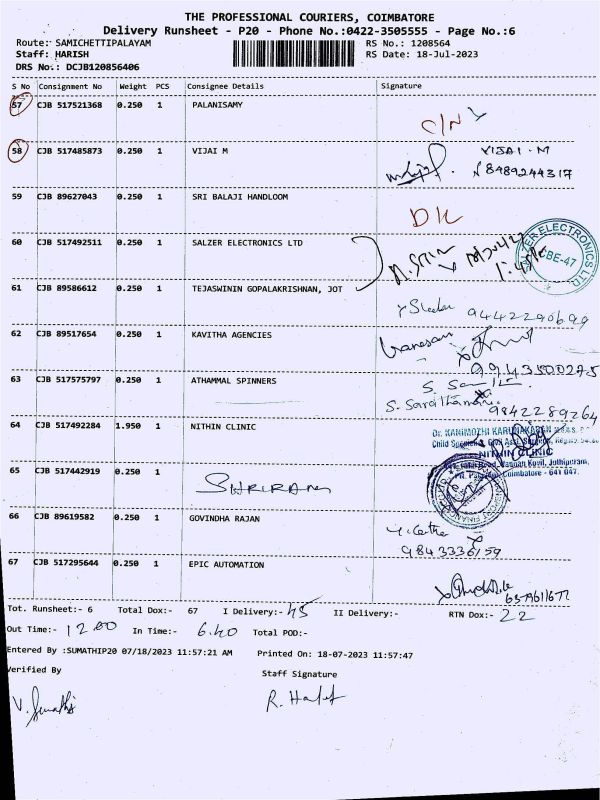 THE PROFESSIONAL COURIERS, COIMBATORE
Delivery Runsheet - P20 - Phone No.:0422-3505555 - Page No.:6
Route: SAMICHETTIPALAYAM RS No.: 1208564
Staff: HARISH RS Date: 18-Jul-2023
DRS No.: DCJB120856406
S No Consignment No Weight PCS Consignee Details Signature
57 CJB 517521368 0.250 1 PALANISAMY
C/N
58 CJB 517485873 0.250 1 VIJAI M VIJAI - M
8489244317
59 CJB 89627043 0.250 1 SRI BALAJI HANDLOOM
D/L
60 CJB 517492511 0.250 1 SALZER ELECTRONICS LTD
SALZER ELECTRONICS LTD. CBE-47
61 CJB 89586612 0.250 1 TEJASWININ GOPALAKRISHNAN, JOT
9442290699
62 CJB 89517654 0.250 1 KAVITHA AGENCIES
Ganesan
9943500275
63 CJB 517575797 0.250 1 ATHAMMAL SPINNERS
9842289264
64 CJB 517492284 1.950 1 NITHIN CLINIC
Dr. KANIMOZHI KARUNAKARAN
NITHIN CLINIC
Coimbatore - 641 047.
65 CJB 517442919 0.250 1
SHRIRAM
66 CJB 89619582 0.250 1 GOVINDHA RAJAN
9843336159
67 CJB 517295644 0.250 1 EPIC AUTOMATION
Tot. Runsheet:- 6 Total Dox:- 67 I Delivery:- 45 II Delivery:- RTN Dox:- 22
Out Time:- 12.00 In Time:- 6.40 Total POD:-
Entered By :SUMATHIP20 07/18/2023 11:57:21 AM Printed On: 18-07-2023 11:57:47
Verified By Staff Signature
V. Sumathi